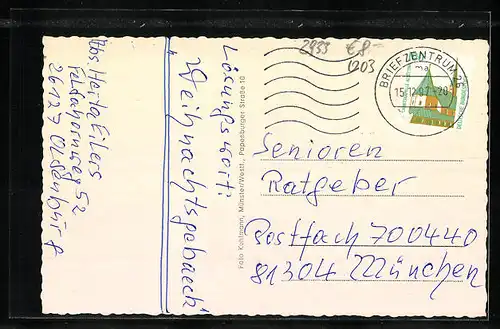 Abs. Herta Eilers
Feldahornweg 52
26127 Oldenburg
Lösungswort:
"Weihnachtsgebäck"
Foto Kuhlmann, Münster/Westf., Papenburger Straße 10
2933 €8-
1203
BRIEFZENTRUM 26
ma
15.12.07-20
Senioren
Ratgeber
Postfach 700440
81304 München